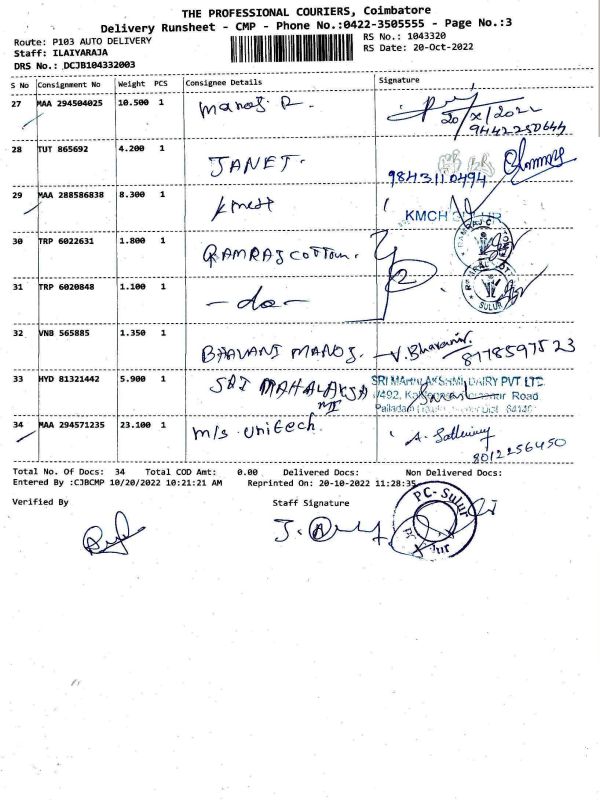 THE PROFESSIONAL COURIERS, Coimbatore
Delivery Runsheet - CMP - Phone No.:0422-3505555 - Page No.:3
Route: P103 AUTO DELIVERY
Staff: ILAIYARAJA
DRS No.: DCJB104332003
RS No.: 1043320
RS Date: 20-Oct-2022
S No Consignment No Weight PCS Consignee Details Signature
27 MAA 294504025 10.500 1 Manoj R. 20/X/2022
9442250644
28 TUT 865692 4.200 1 JANET. 9843110494
29 MAA 288586838 8.300 1 kmch KMCH SULUR
30 TRP 6022631 1.800 1 RAMRAJ COTTON. RAMRAJ COTTON
31 TRP 6020848 1.100 1 - do - SULUR
32 VNB 565885 1.350 1 BHAVANI MANOJ. V. Bhavani.
8778597523
33 HYD 81321442 5.900 1 SRI MAHALAKSHMI SRI MAHALAKSHMI DAIRY PVT LTD
Road
34 MAA 294571235 23.100 1 m/s unitech.
8012256450
Total No. Of Docs: 34 Total COD Amt: 0.00 Delivered Docs: Non Delivered Docs:
Entered By :CJBCMP 10/20/2022 10:21:21 AM Reprinted On: 20-10-2022 11:28:35
Verified By Staff Signature
PC-Sulur